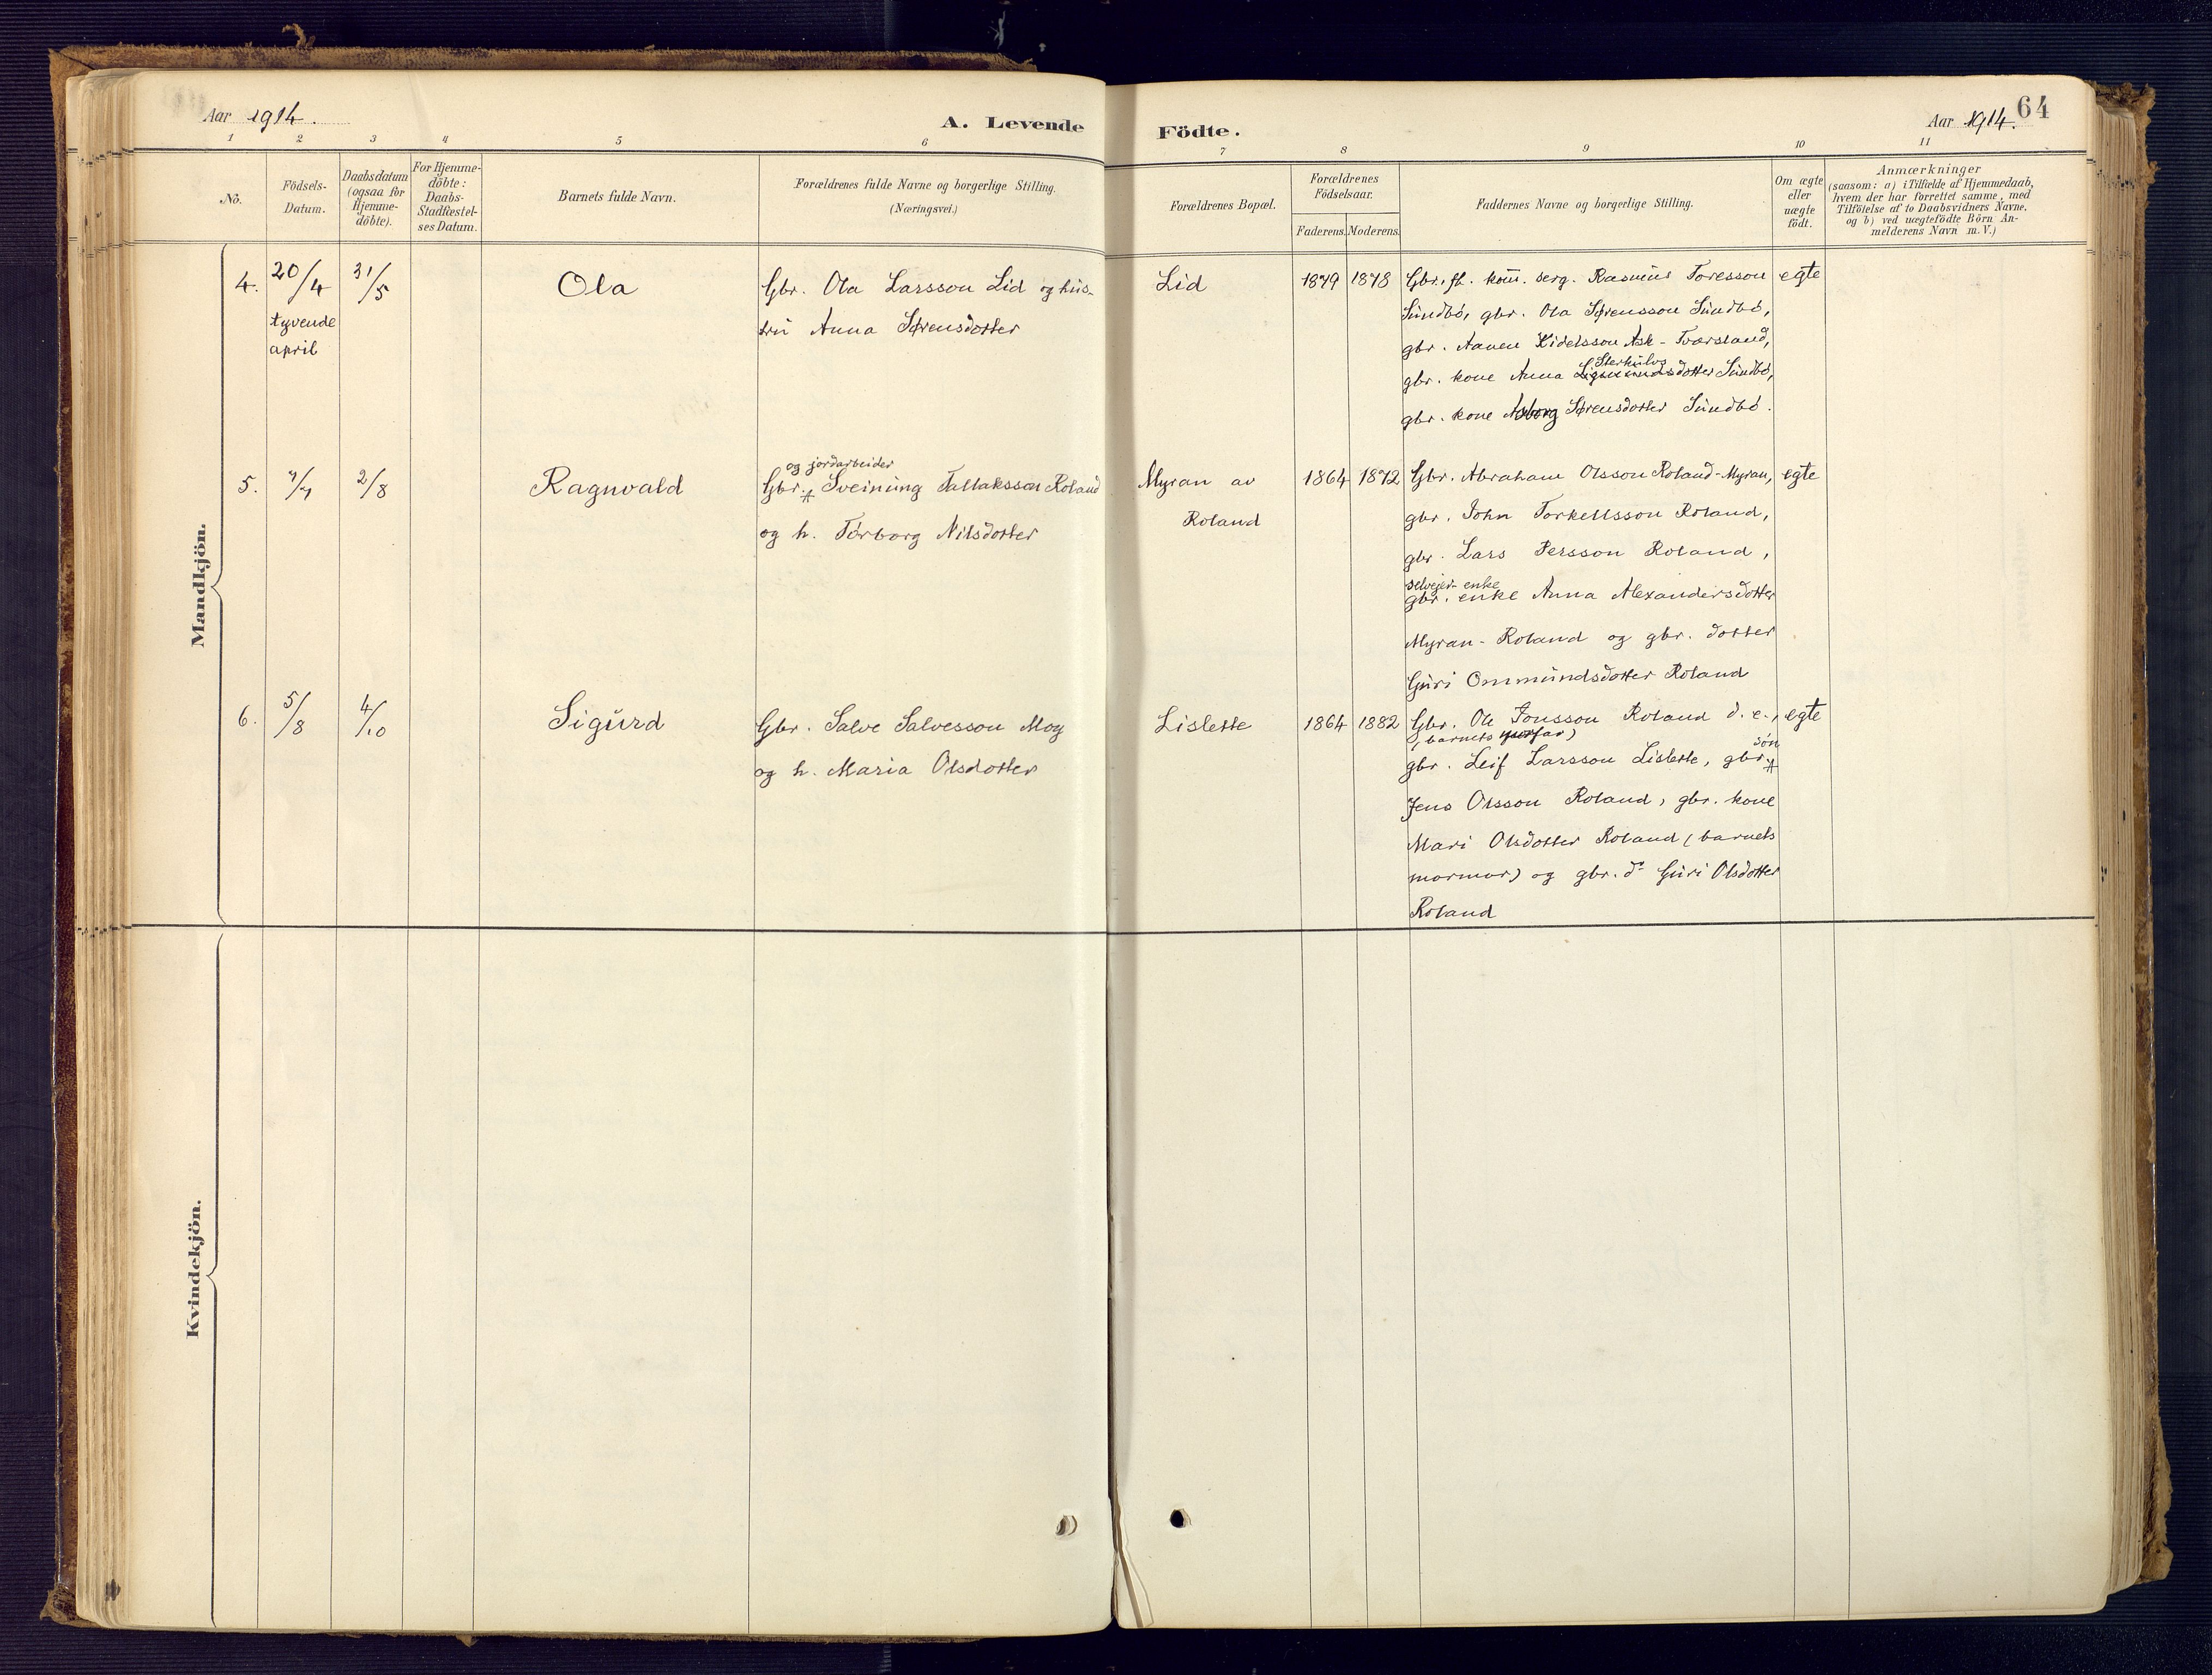 Aar 1914.
A. Levende
1 2 3 4 5 6
No.
Födsels-
Datum.
Daabsdatum
(ogsaa for
Hjemme-
döbte).
For Hjemme-
döbte:
Daabs-
Stadfæstel-
ses Datum.
Barnets fulde Navn.
Forældrenes fulde Navne og borgerlige Stilling.
(Næringsvei.)
Mandkjön.
4. 20/4 31/5 Ola Gbr. Ola Larsson Lid og hus-
tyvende
tru Anna Sørensdotter
april
og jordarbeider
5. 7/7 2/8 Ragnvald Gbr. Sveinung Tallaksson Roland
og h. Torborg Nilsdotter
6. 5/8 4/10 Sigurd Gbr. Salve Salvesson Mog
og h. Maria Olsdotter
Kvindekjön.
Födte.
Aar 1914.
64
7 8 9 10 11
Forældrenes Bopæl.
Forældrenes
Födselsaar.
Faderens. Moderens.
Faddernes Navne og borgerlige Stilling.
Om ægte
eller
uægte
födt.
Anmærkninger
(saasom: a) i Tilfælde af Hjemmedaab,
hvem der har forrettet samme, med
Tilföielse af to Daabsvidners Navne.
og b) ved uægtefödte Börn An-
melderens Navn m. V.)
Lid 1879 1878 Gbr. fh. kom. serg. Rasmus Toresson egte
Sundbø, gbr. Ola Sørensson Sundbø,
gbr. Aanen Kidelsson Ask-Tværsland,
Sterkulvs
gbr. kone Anna Sigmundsdotter Sundbø,
gbr. kone Asborg Sørensdotter Sundbø.
Myran av 1864 1872 Gbr. Abraham Olsson Roland-Myran, egte
Roland
gbr. John Torkellsson Roland,
gbr. Lars Persson Roland,
selveier-enke
gbr. enke Anna Alexandersdotter
Myran-Roland og gbr. dotter
Guri Ommundsdotter Roland
Lislette 1864 1882 Gbr. Ole Jonsson Roland d. e., egte
(barnets morfar)
søn
gbr. Leif Larsson Lislette, gbr.
Jens Olsson Roland, gbr. kone
Mari Olsdotter Roland (barnets
mormor) og gbr. dr Guri Olsdotter
Roland